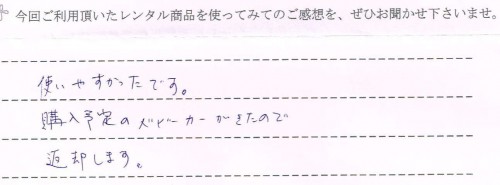 今回ご利用頂いたレンタル商品を使ってみてのご感想を、ぜひお聞かせ下さいませ。
使いやすかったです。
購入予定のベビーカーがきたので
返却します。